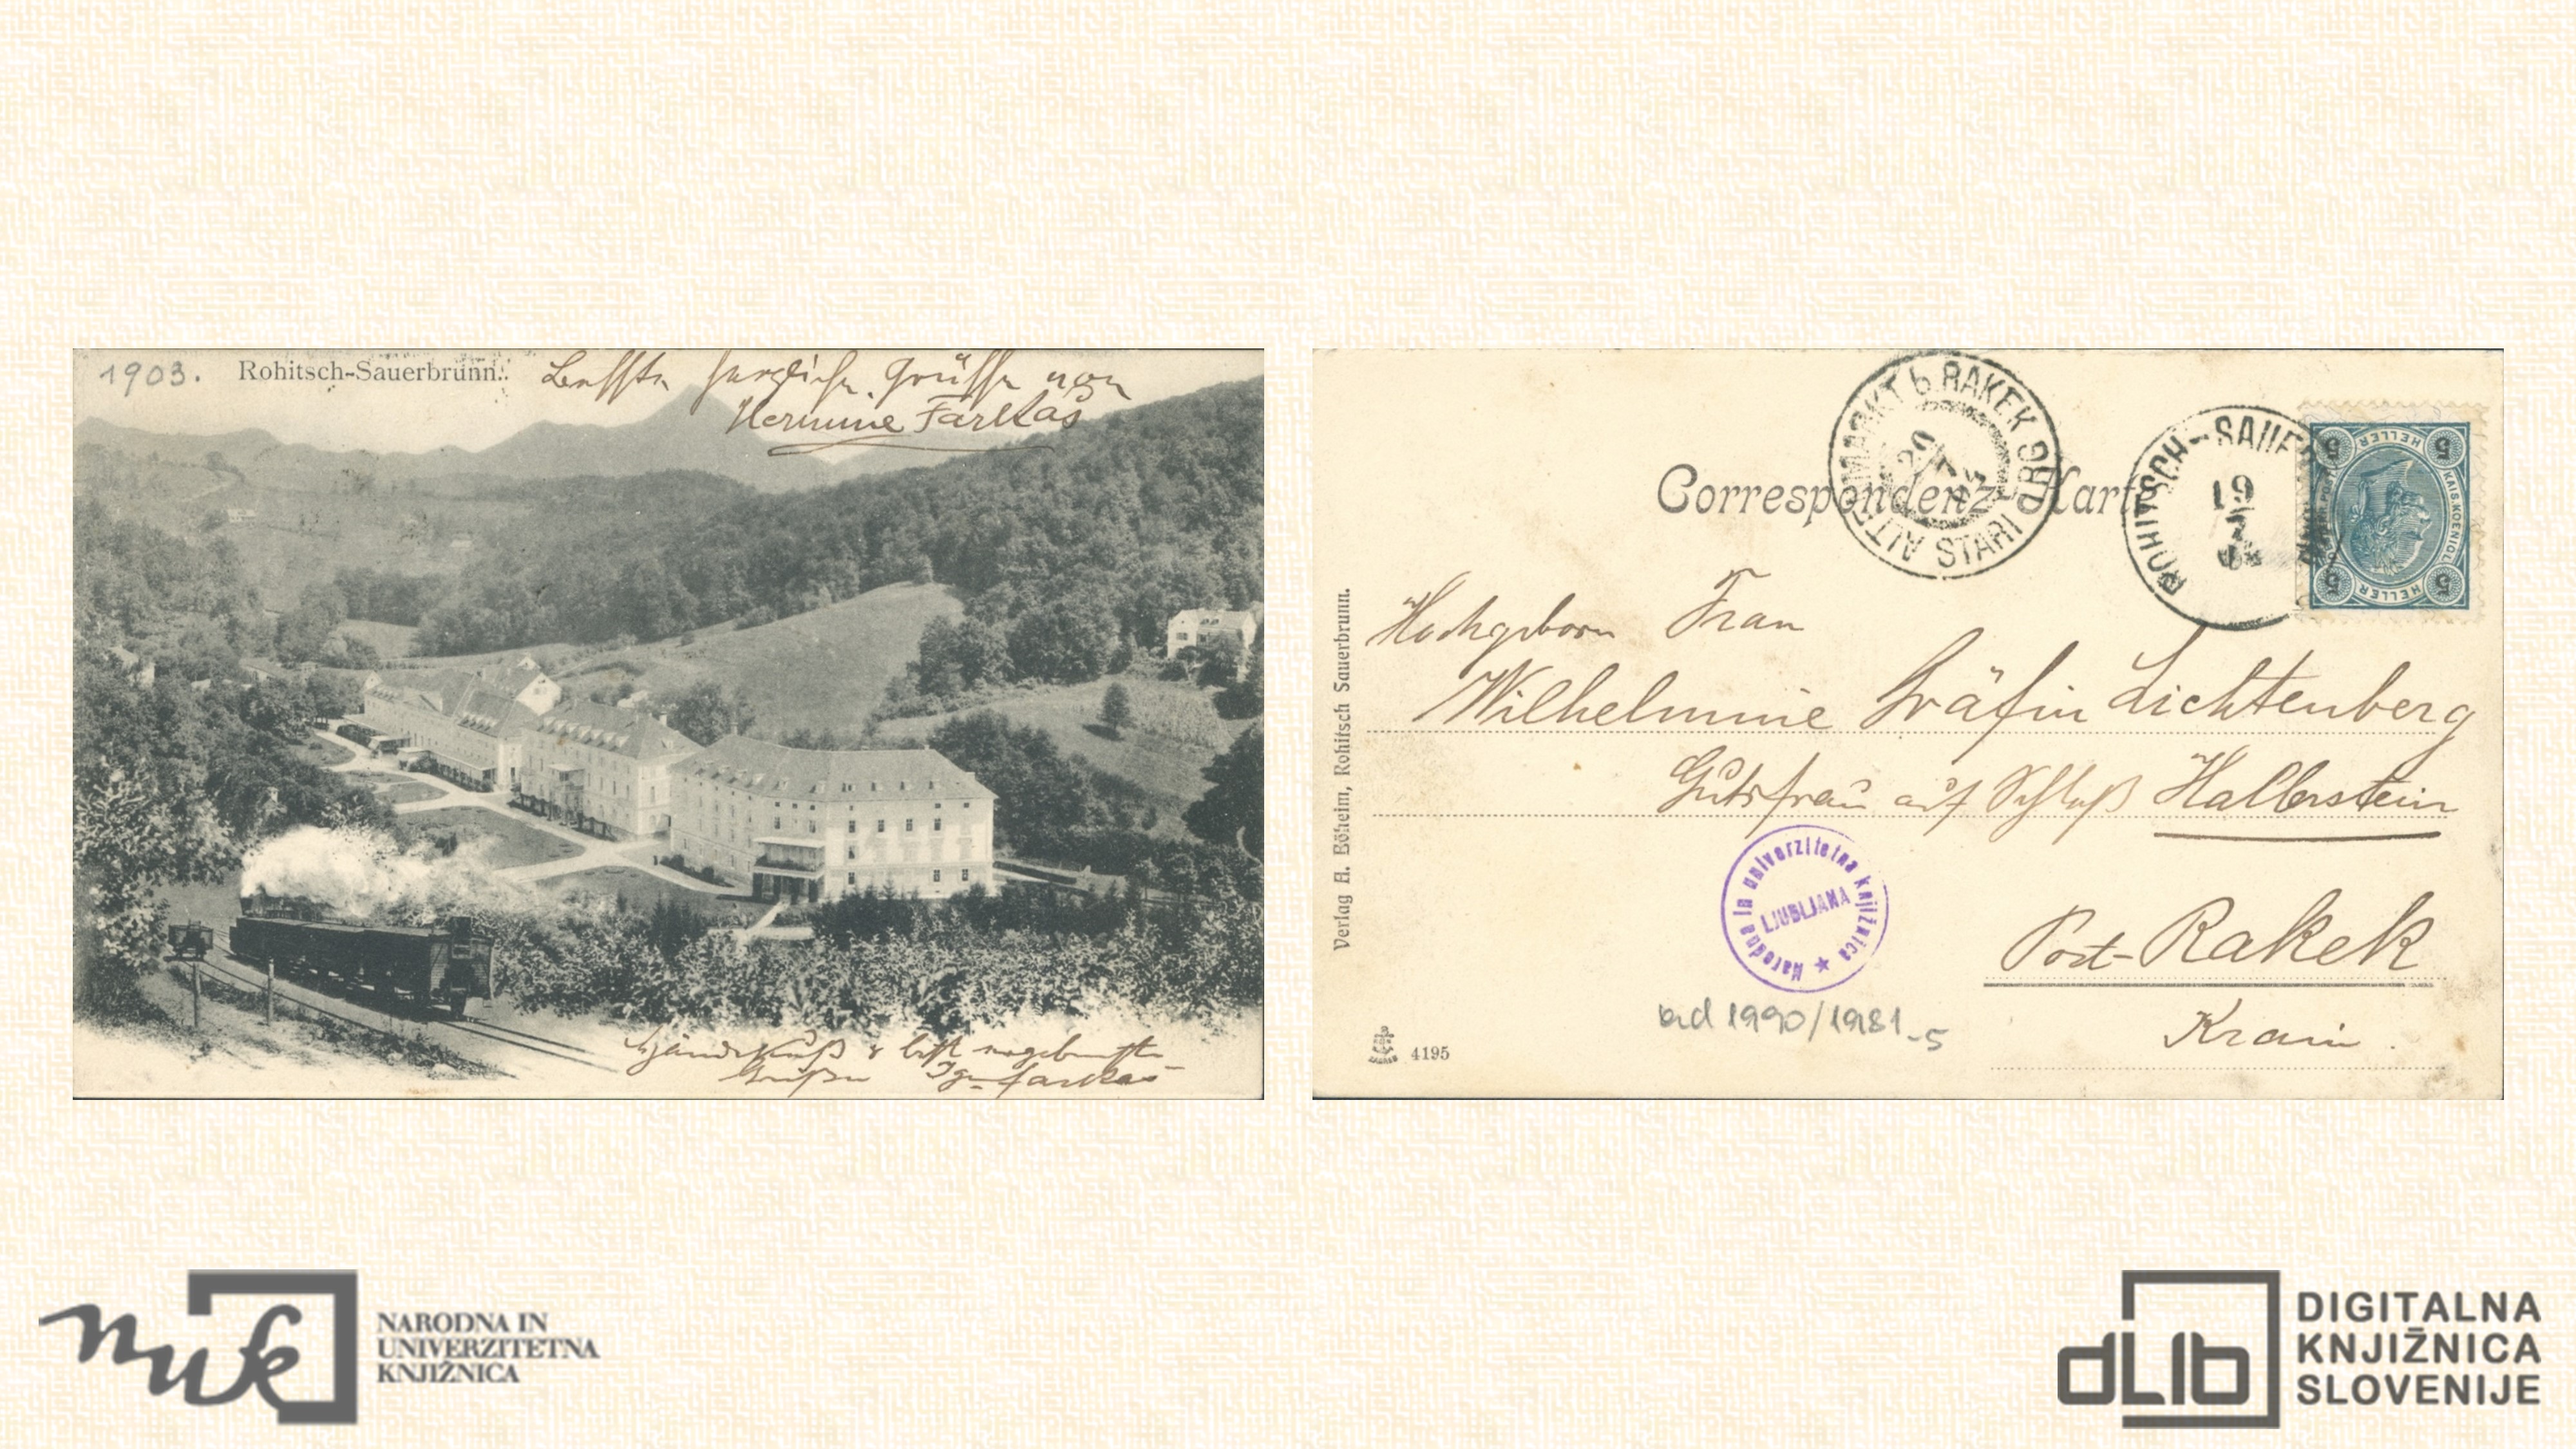 1903.
Rohitsch-Sauerbrunn.
herzliche Grüsse von
Hermine Farkas
Handkuß & best
Grüße Farkas
Correspondenz-Karte
ALTENMARKT b. RAKEK
STARI TRG
20
ROHITSCH-SAUER
19
7
5 HELLER 5
KAIS. KOENIGL.
5 HELLER 5
Hochgeborn Frau
Wilhelmine Gräfin Lichtenberg
Gutsfrau auf Schloß Hallerstein
Post-Rakek
Krain.
Verlag A. Böheim, Rohitsch Sauerbrunn.
Narodna in univerzitetna knjižnica ★
LJUBLJANA
1990/1981-5
4195
nuk
NARODNA IN
UNIVERZITETNA
KNJIŽNICA
dLib
DIGITALNA
KNJIŽNICA
SLOVENIJE